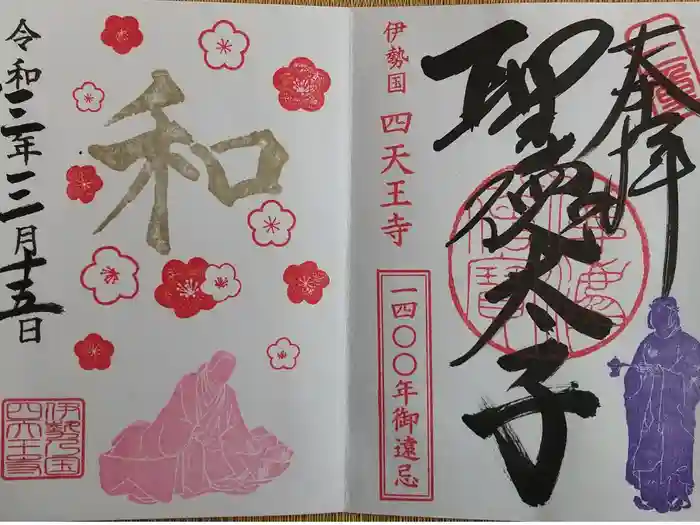 奉拝
聖徳太子
伊勢国 四天王寺
一四〇〇年御遠忌
和
令和三年三月十五日
伊勢乃国
四天王寺